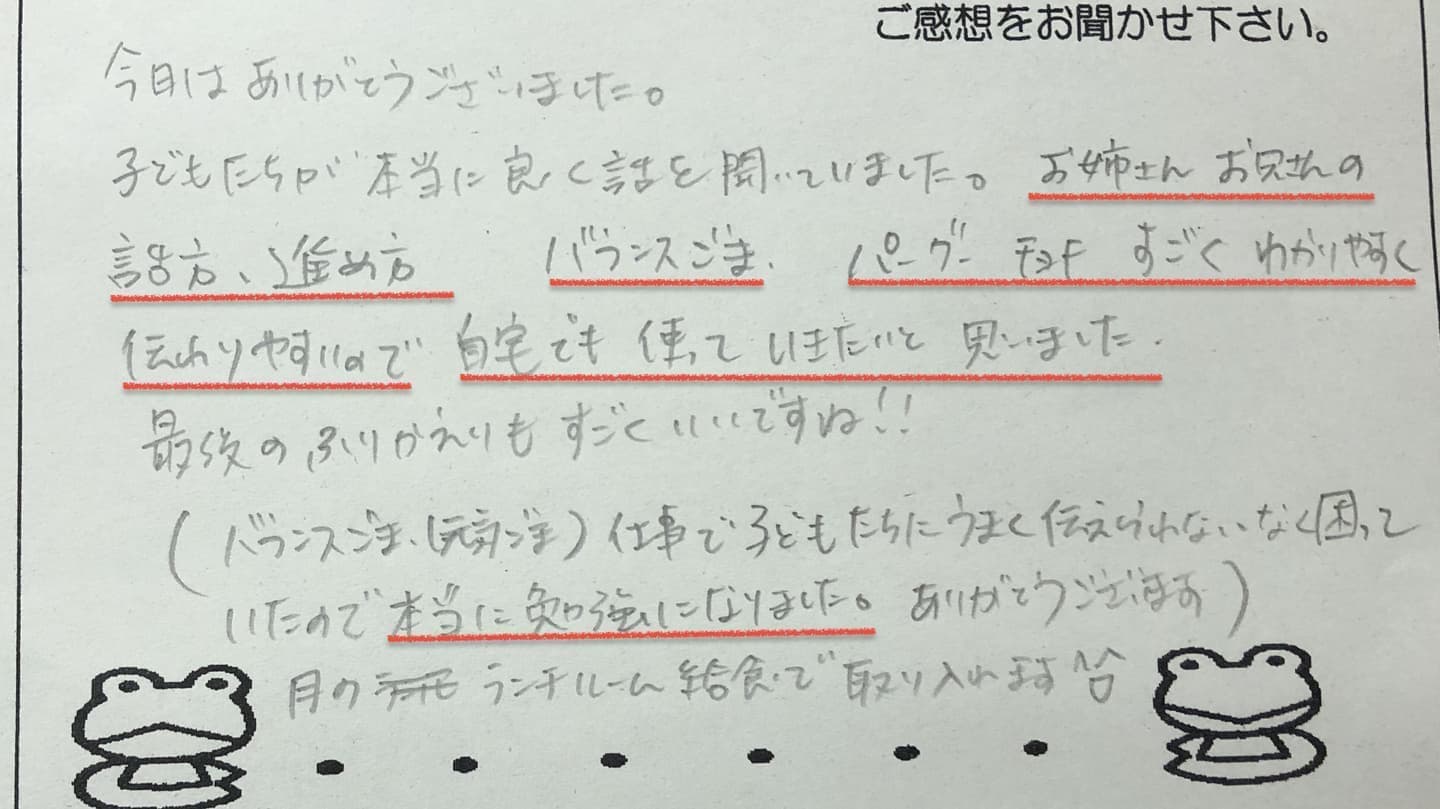 ご感想をお聞かせ下さい。
今日はありがとうございました。
子どもたちが本当に良く話を聞いていました。お姉さんお兄さんの
話方、進め方 バランスごま、パーグー すごくわかりやすく
伝わりやすいので自宅でも使っていきたいと思いました.
最後のふりかえりもすごくいいですね!!
(バランスごま、元気ごま)仕事で子どもたちにうまく伝えられないなく困って
いたので本当に勉強になりました。ありがとうございます)
月の ランチルーム給食で取り入れます^^